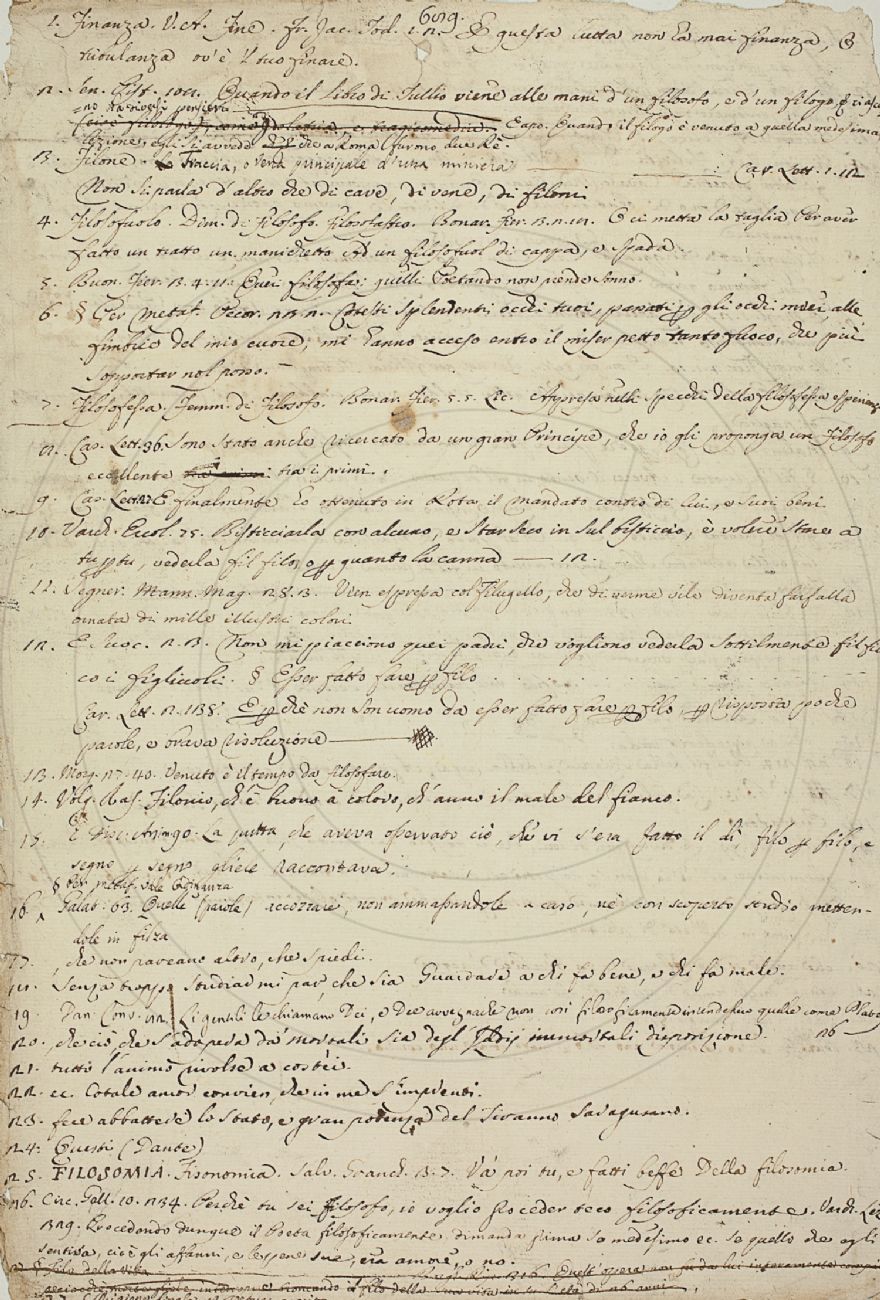 6019.
1. Finanza. V. et. Fine. Fr. Jac. Tod. 1.2. E questa lutta non ha mai finanza, O
nibulanza ov'è 'l tuo finare.
2. Sen. Pist. 108. Quando il libro di Tullio viene alle mani d'un filosofo, e d'un filogo,
Capo. Quando il filogo è venuto a quella medesima
lezione, egli si avvede che a Roma furono due Re.
3. Filone. Traccia, o Vena principale d'una miniera Car. Lett. 1. 12
Non si parla d'altro che di cave, di vene, di filoni
4. Filosofuolo. Dim. di Filosofo. Filosofastro. Bonar. Fier. 3. 2. 18. E ci metta la taglia Per aver
fatto un tratto un manichetto Ad un filosofuol di cappa, e spada.
5. Buon. Fier. 3. 4. 11. Quei filosofai quelli Poetando non prende sonno.
6. § Per metaf. Cotesti splendenti occhi tuoi, passati p gli occhi miei alle
fimbrie del mio cuore, mi hanno acceso entro il miser petto tanto fuoco, che più
sopportar nol posso.
7. Filosofessa. Femm. di Filosofo. Bonar. Fier. 5. 5. Lic. Appresa nelli specchi della filosofessa esperienza
8. Car. Lett. 36. Sono stato anche ricercato da un gran Principe, che io gli proponga un Filosofo
eccellente tra i primi.
9. Car. Lett. E finalmente ho ottenuto in Rota il mandato contro di lui, e suoi beni
10. Varch. Ercol. 75. Bisticciarla con alcuno, e star seco in sul bisticcio, è volere stare a
tu p tu, vederla fil filo, o p quanto la canna — 12.
11. Segner. Mann. Mag. 28. 3. Vien espressa col Filugello, che di verme vile diventa farfalla
ornata di mille illustri colori.
12. E Suoc. 2. 3. Non mi piacciono quei padri, che vogliono vederla sottilmente fil filo
co i figliuoli. § Esser fatto fare p filo
Car. Lett. 2. 138. E p chè non son uomo da esser fatto fare p filo, p risposta poche
parole, e brava risoluzione
13. Morg. 27. 40. Venuto è il tempo da filosofare.
14. Volg. Ras. Filonio, ch'è buono a coloro, ch'anno il male del fianco.
15. E Asin. 90. La putta, che aveva osservato ciò, che vi s'era fatto il dì, filo p filo, e
segno p segno gliele raccontava.
16. Galat. 63. Quelle (parole) accozzare, non ammassandole a caso, nè con scoperto studio metten-
dole in filza
17. , che non paveano altro, che spiedi.
18. Senza troppo studiar mi par, che sia Guardare a chi fa bene, e chi fa male.
19. Dan. Conv. Li gentili le chiamano Dei, e Dee avvegnachè non così filosoficamente intendessino quelle come Plato
20. , che ciò che s'adopera da' mortali sia degl' Iddij immortali disposizione. 26
21. tutto l'animo rivolse a costei.
22. ec. Cotale amor convien, che in me s'imprenti.
23. fece abbattere lo stato, e gran potenza del Tiranno Saragusano.
24. Questi (Dante)
25. FILOSOMIA. Fisonomia. Salv. Granch. 3. 7. Va poi tu, e fatti beffe Della filosomia.
26. Circ. Gell. 10. 234. Perchè tu sei filosofo, io voglio proceder teco filosoficamente. Varch. Lez.
329. Procedendo dunque il Poeta filosoficamente, dimanda prima se medesimo ec. se quello che egli
sentiva, cioè gli affanni, e le pene sue, era amore, o no.